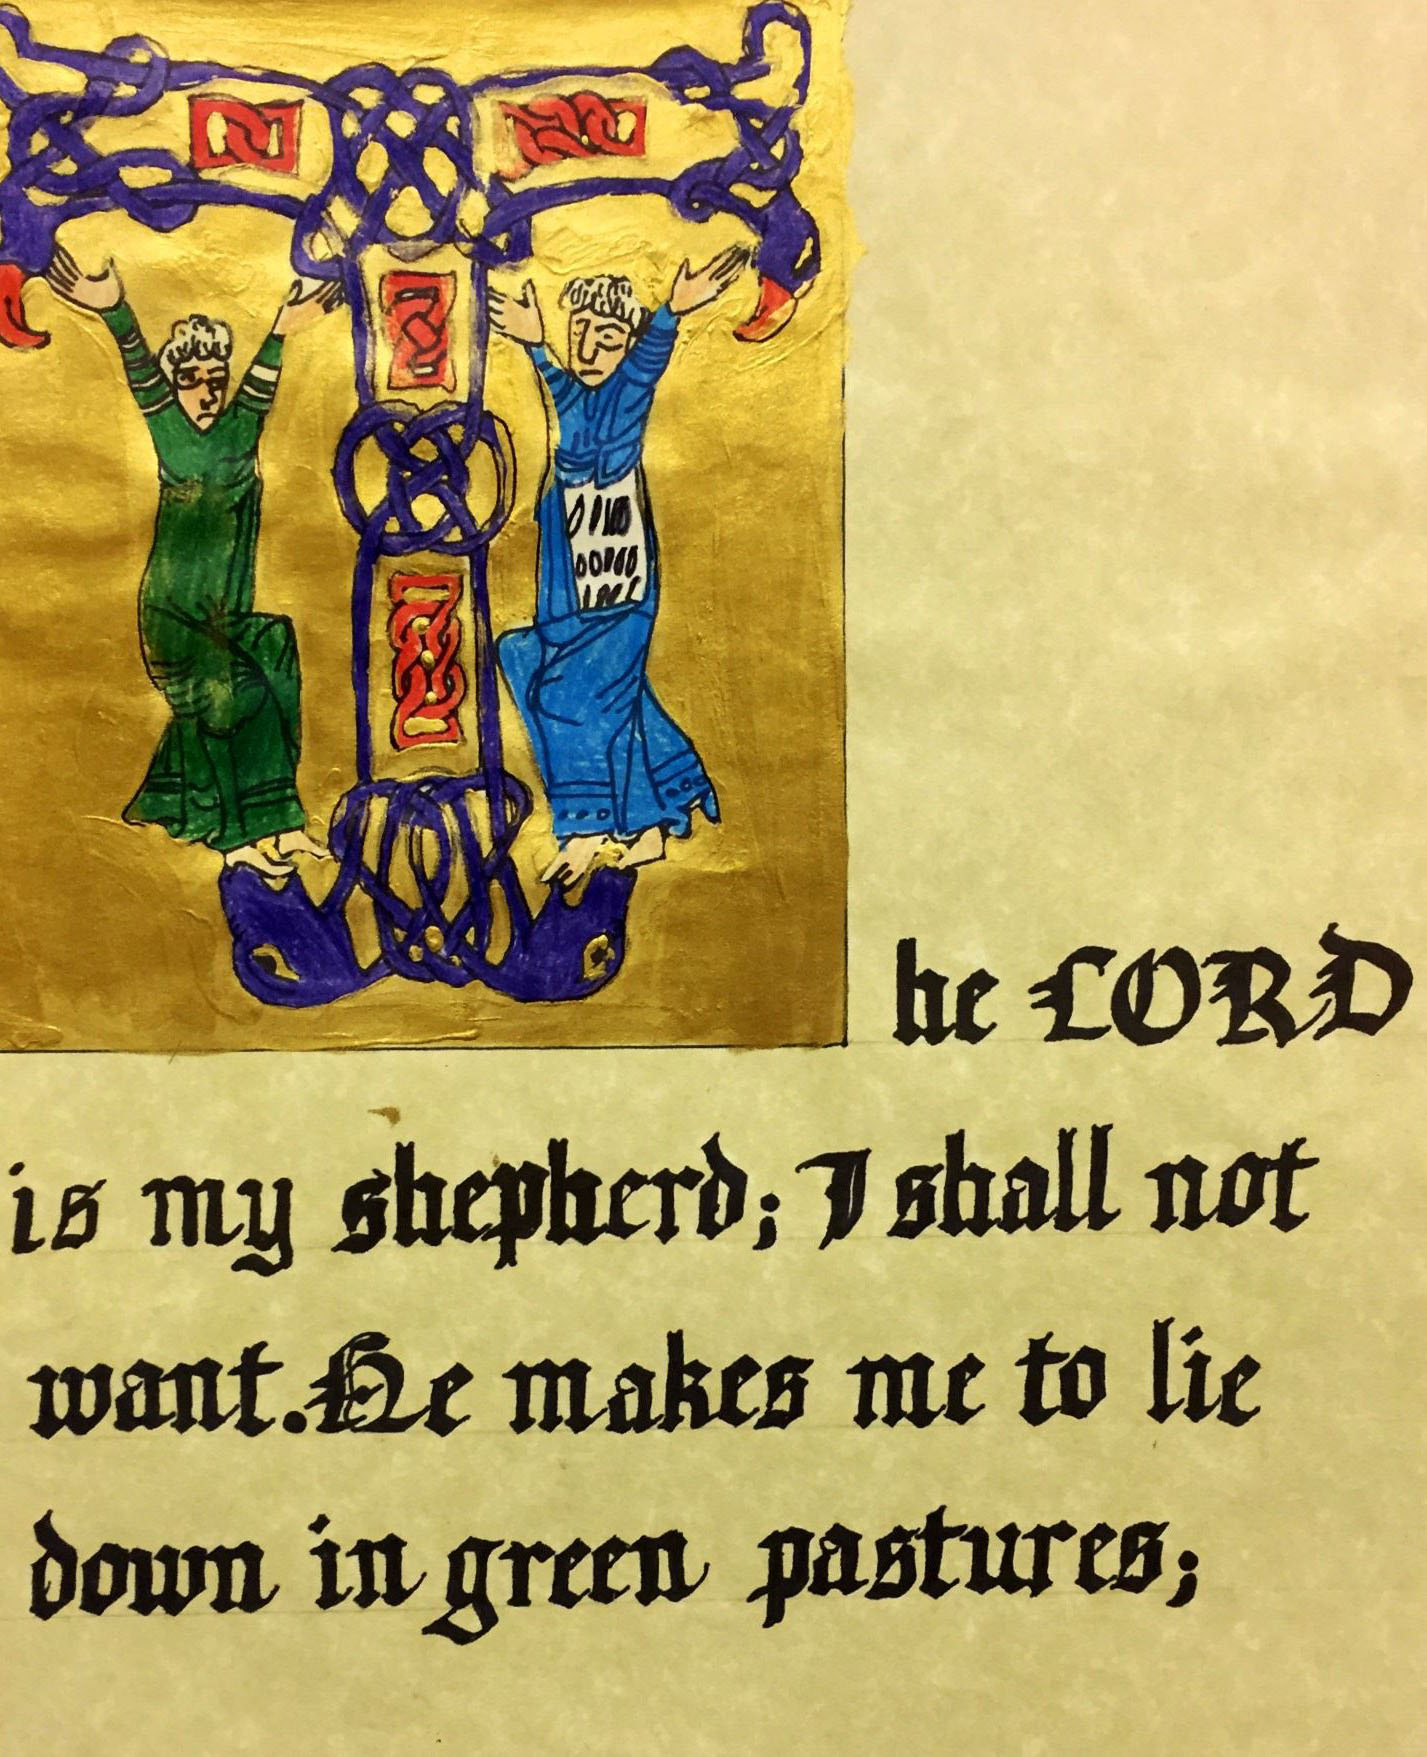 The LORD
is my shepherd; I shall not
want. He makes me to lie
down in green pastures;